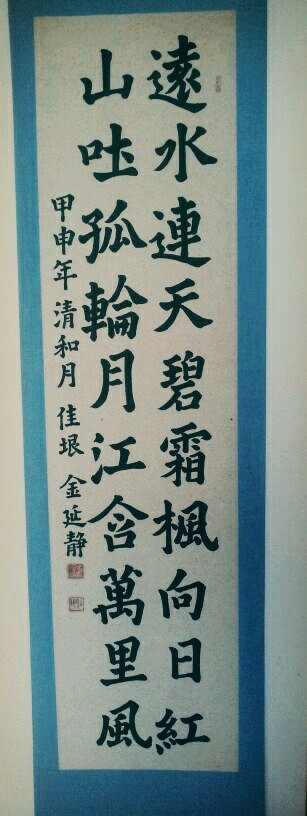 遠水連天碧霜楓向日紅
山吐孤輪月江含萬里風
甲申年 清和月 佳垠 金延静